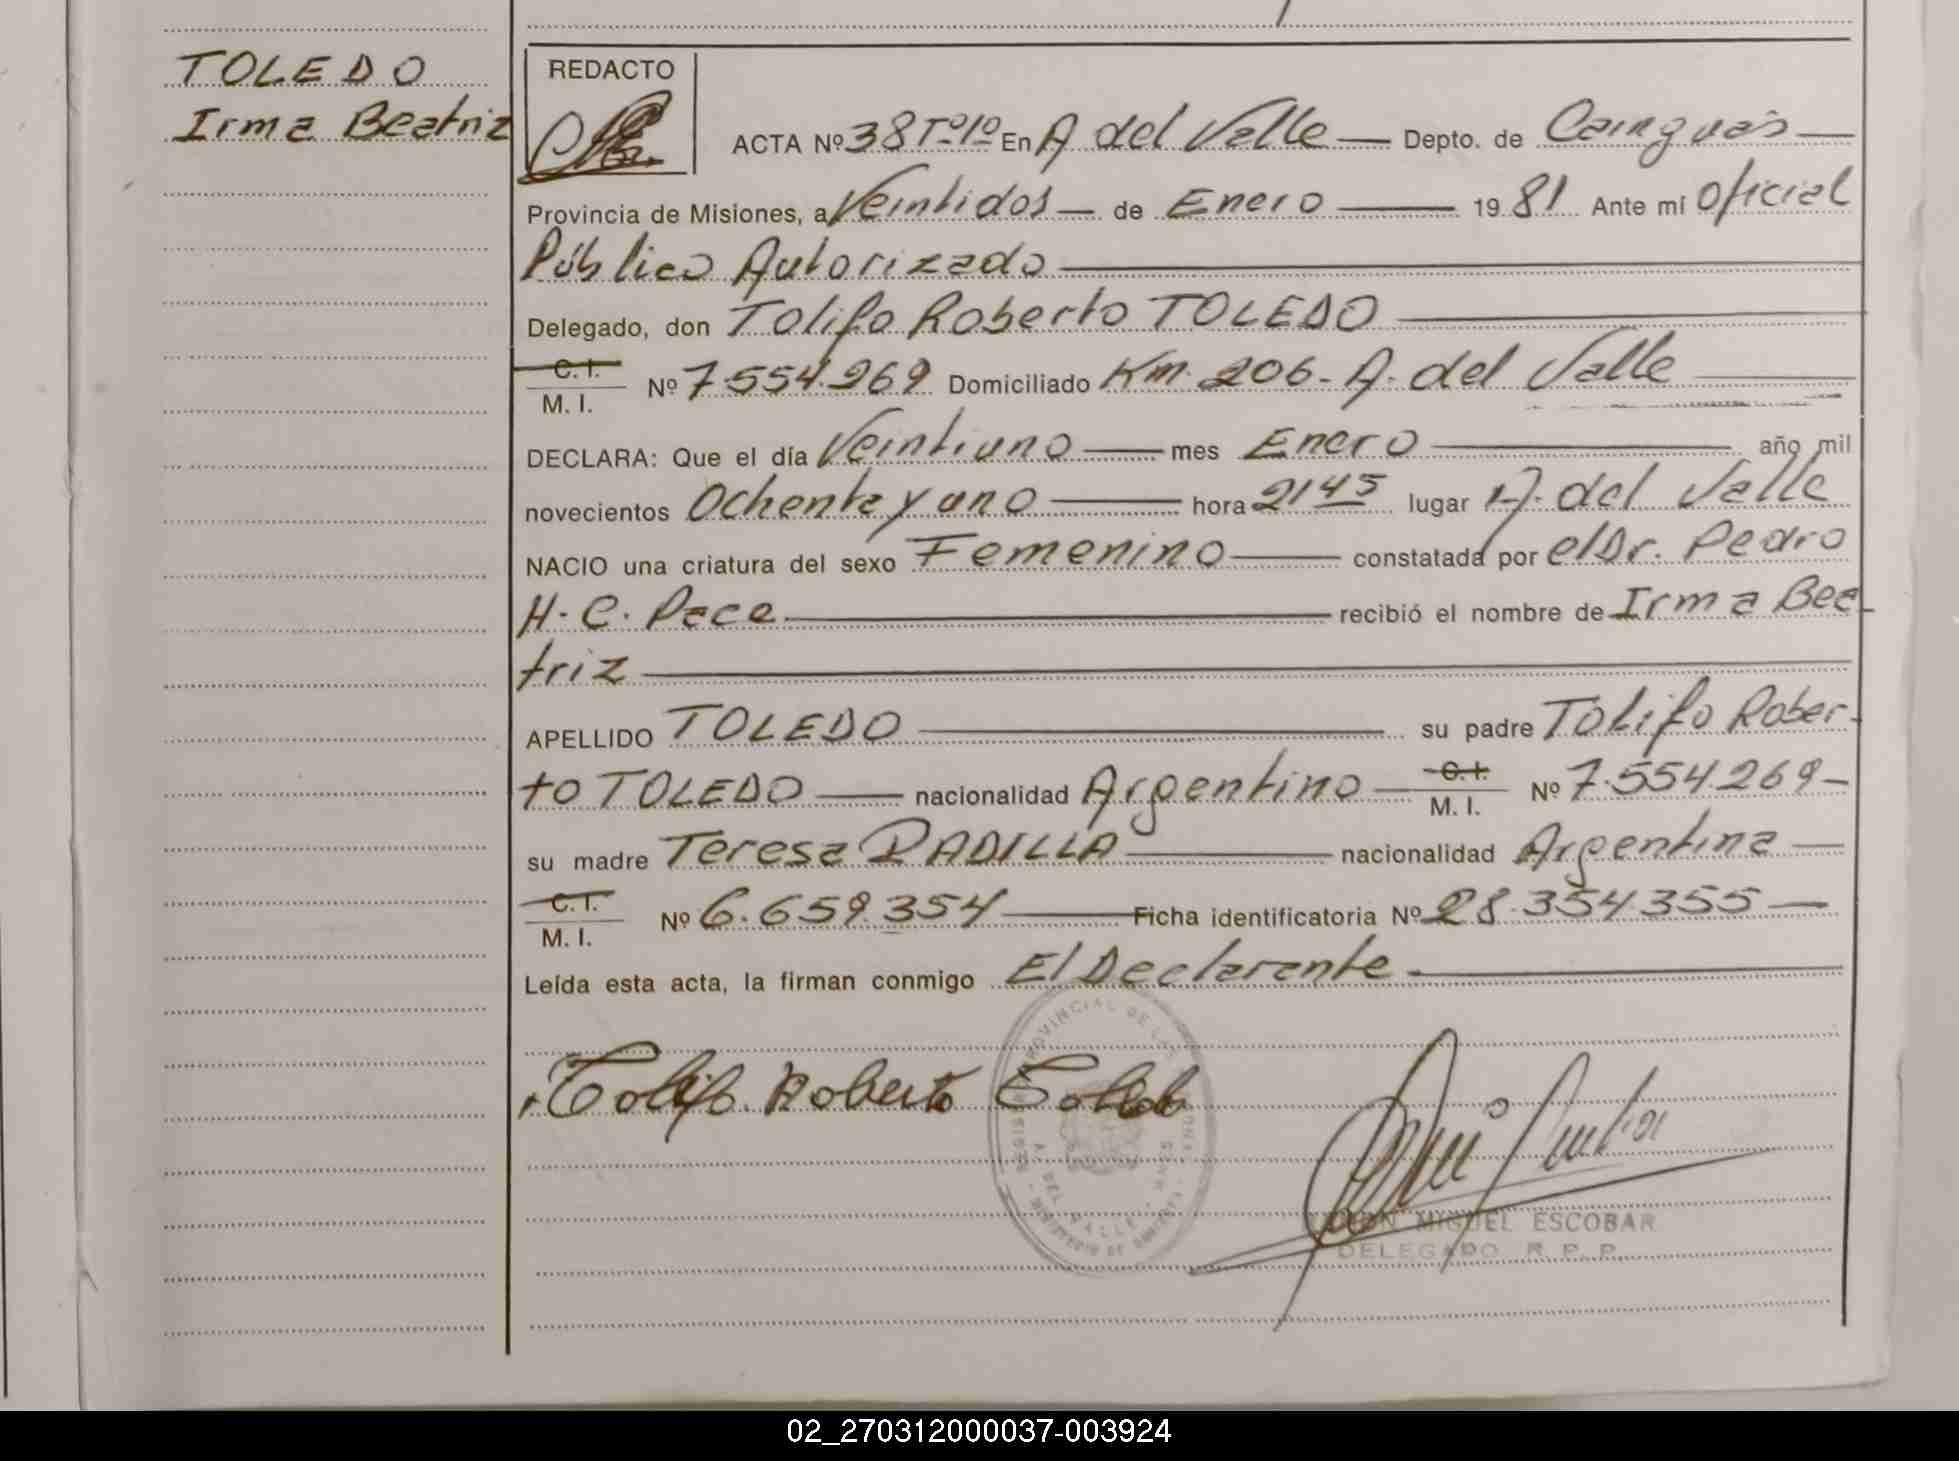 TOLEDO
Irma Beatriz
REDACTO
ACTA Nº 38 Tº 1º En A del Valle — Depto. de Cainguás —
Provincia de Misiones, a Veintidos — de Enero — 1981 Ante mi Oficial
Público Autorizado
Delegado, don Tolifo Roberto TOLEDO
C. I.
M. I. Nº 7.554.269 Domiciliado Km. 206 - A. del Valle
DECLARA: Que el día Veintiuno — mes Enero — año mil
novecientos Ochenta y uno — hora 2145 lugar A. del Valle
NACIO una criatura del sexo Femenino — constatada por el Dr. Pedro
H. C. Pace — recibió el nombre de Irma Bea-
triz
APELLIDO TOLEDO — su padre Tolifo Rober-
to TOLEDO — nacionalidad Argentino — C. I.
M. I. Nº 7.554.269 —
su madre Teresa PADILLA — nacionalidad Argentina —
C. I.
M. I. Nº 6.659.354 — Ficha identificatoria Nº 28.354.355 —
Leída esta acta, la firman conmigo El Declarante —
Tolifo Roberto Toledo
PROVINCIAL DE LAS
A. DEL VALLE
MIGUEL ESCOBAR
DELEGADO R. P. P.
02_270312000037-003924